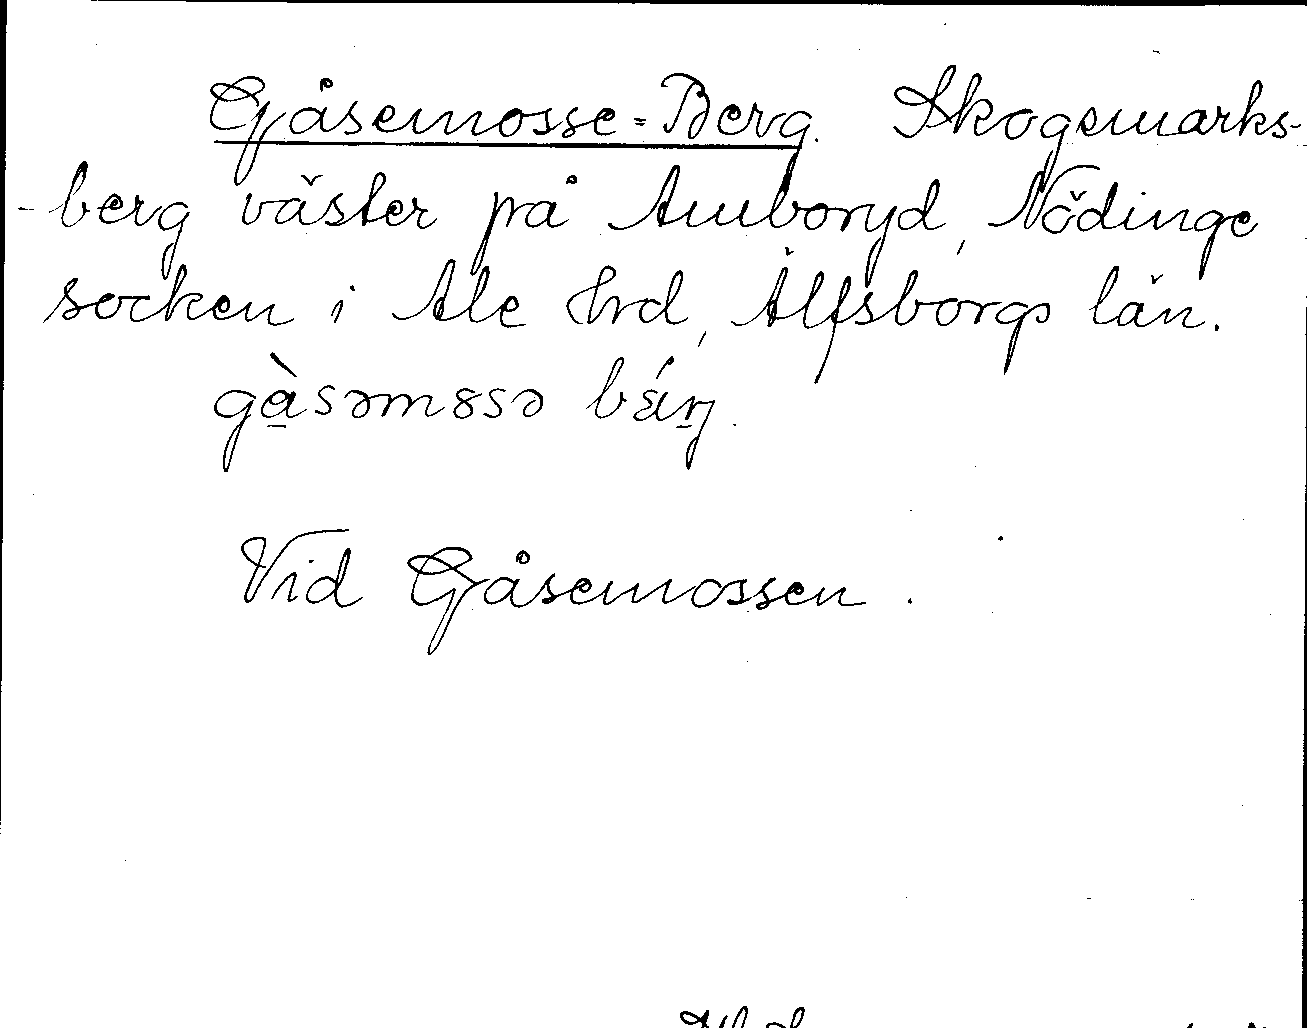 Gåsemosse-Berg. Skogsmarks-
-berg väster på Amboryd, Nödinge
socken i Ale hrd, Älfsborgs län.
gàsəm8sə bǽrj.
Vid Gåsemossen.